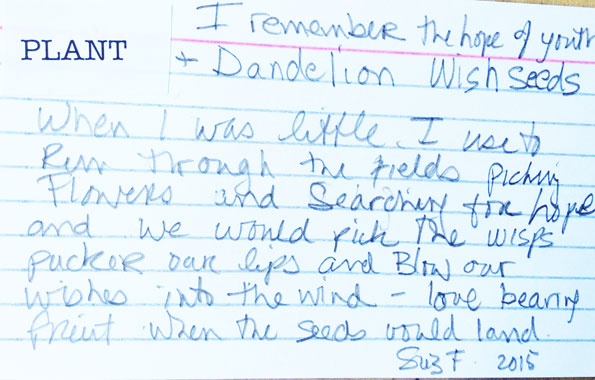 I remember the hope of youth
PLANT
+ Dandelion Wish seeds
When I was little I use to
Run through the fields picking
Flowers and Searching for hope
and we would pick the wisps
pucker our lips and Blow our
wishes into the wind - love bearing
fruit when the seeds would land.
Suz F. 2015